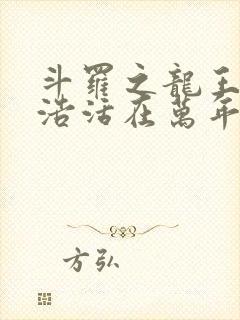 斗羅之龍王
浩活在萬年
方弘